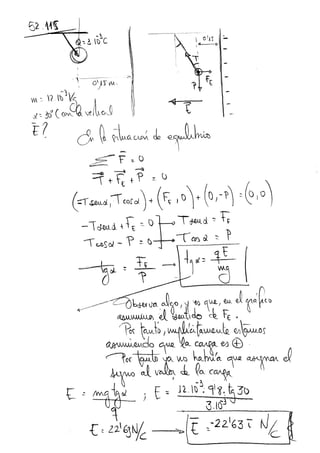 52.118
q=3·10⁻³C
0'15 m.
m = 12·10⁻³ Kg
α = 30° (con la vertical)
E⃗?
0'15
T
F_E
P
E⃗
En la situación de equilibrio
Σ F⃗ = 0
T⃗ + F⃗_E + P⃗ = 0
(-T senα, T cosα) + (F_E, 0) + (0, -P) = (0,0)
-T senα + F_E = 0 → T senα = F_E
T cosα - P = 0 → T cosα = P
tgα = F_E/P → tgα = qE/mg
Observa algo, y es que, en el gráfico
asumimos el sentido de F_E.
Por tanto, implícitamente estamos
asumiendo que la carga es ⊕.
Por tanto ya no habría que asignar el
signo al valor de la carga
E = mg tgα / q ; E = 12·10⁻³·9'8·tg30 / 3·10⁻³
E = 22'63 N/C → E⃗ = -22'63 i⃗ N/C